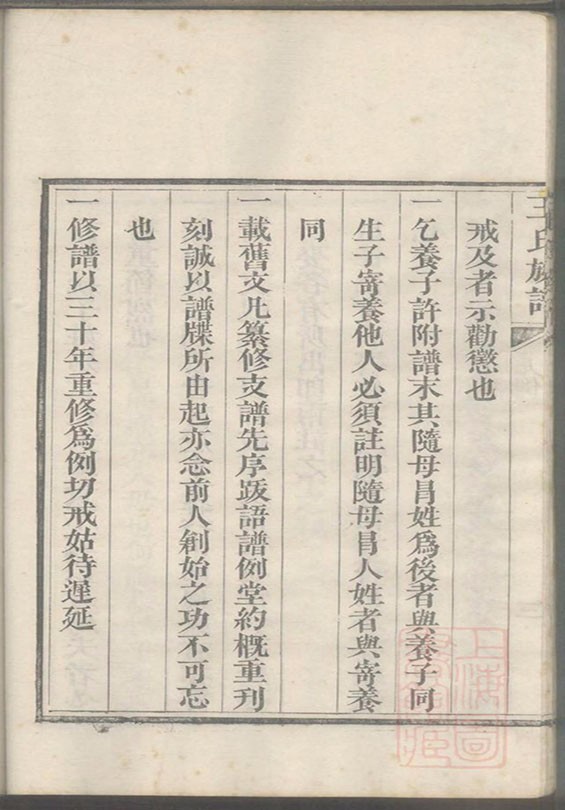 王氏族譜
戒及者示勸懲也
一乞養子許附譜末其隨母冐姓爲後者與養子同
生子寄養他人必須註明隨母冐人姓者與寄養
同
一載舊文凡纂修支譜先序跋語譜例堂約概重刊
刻誠以譜牒所由起亦念前人創始之功不可忘
也
一修譜以三十年重修爲例切戒姑待遲延
上海圖